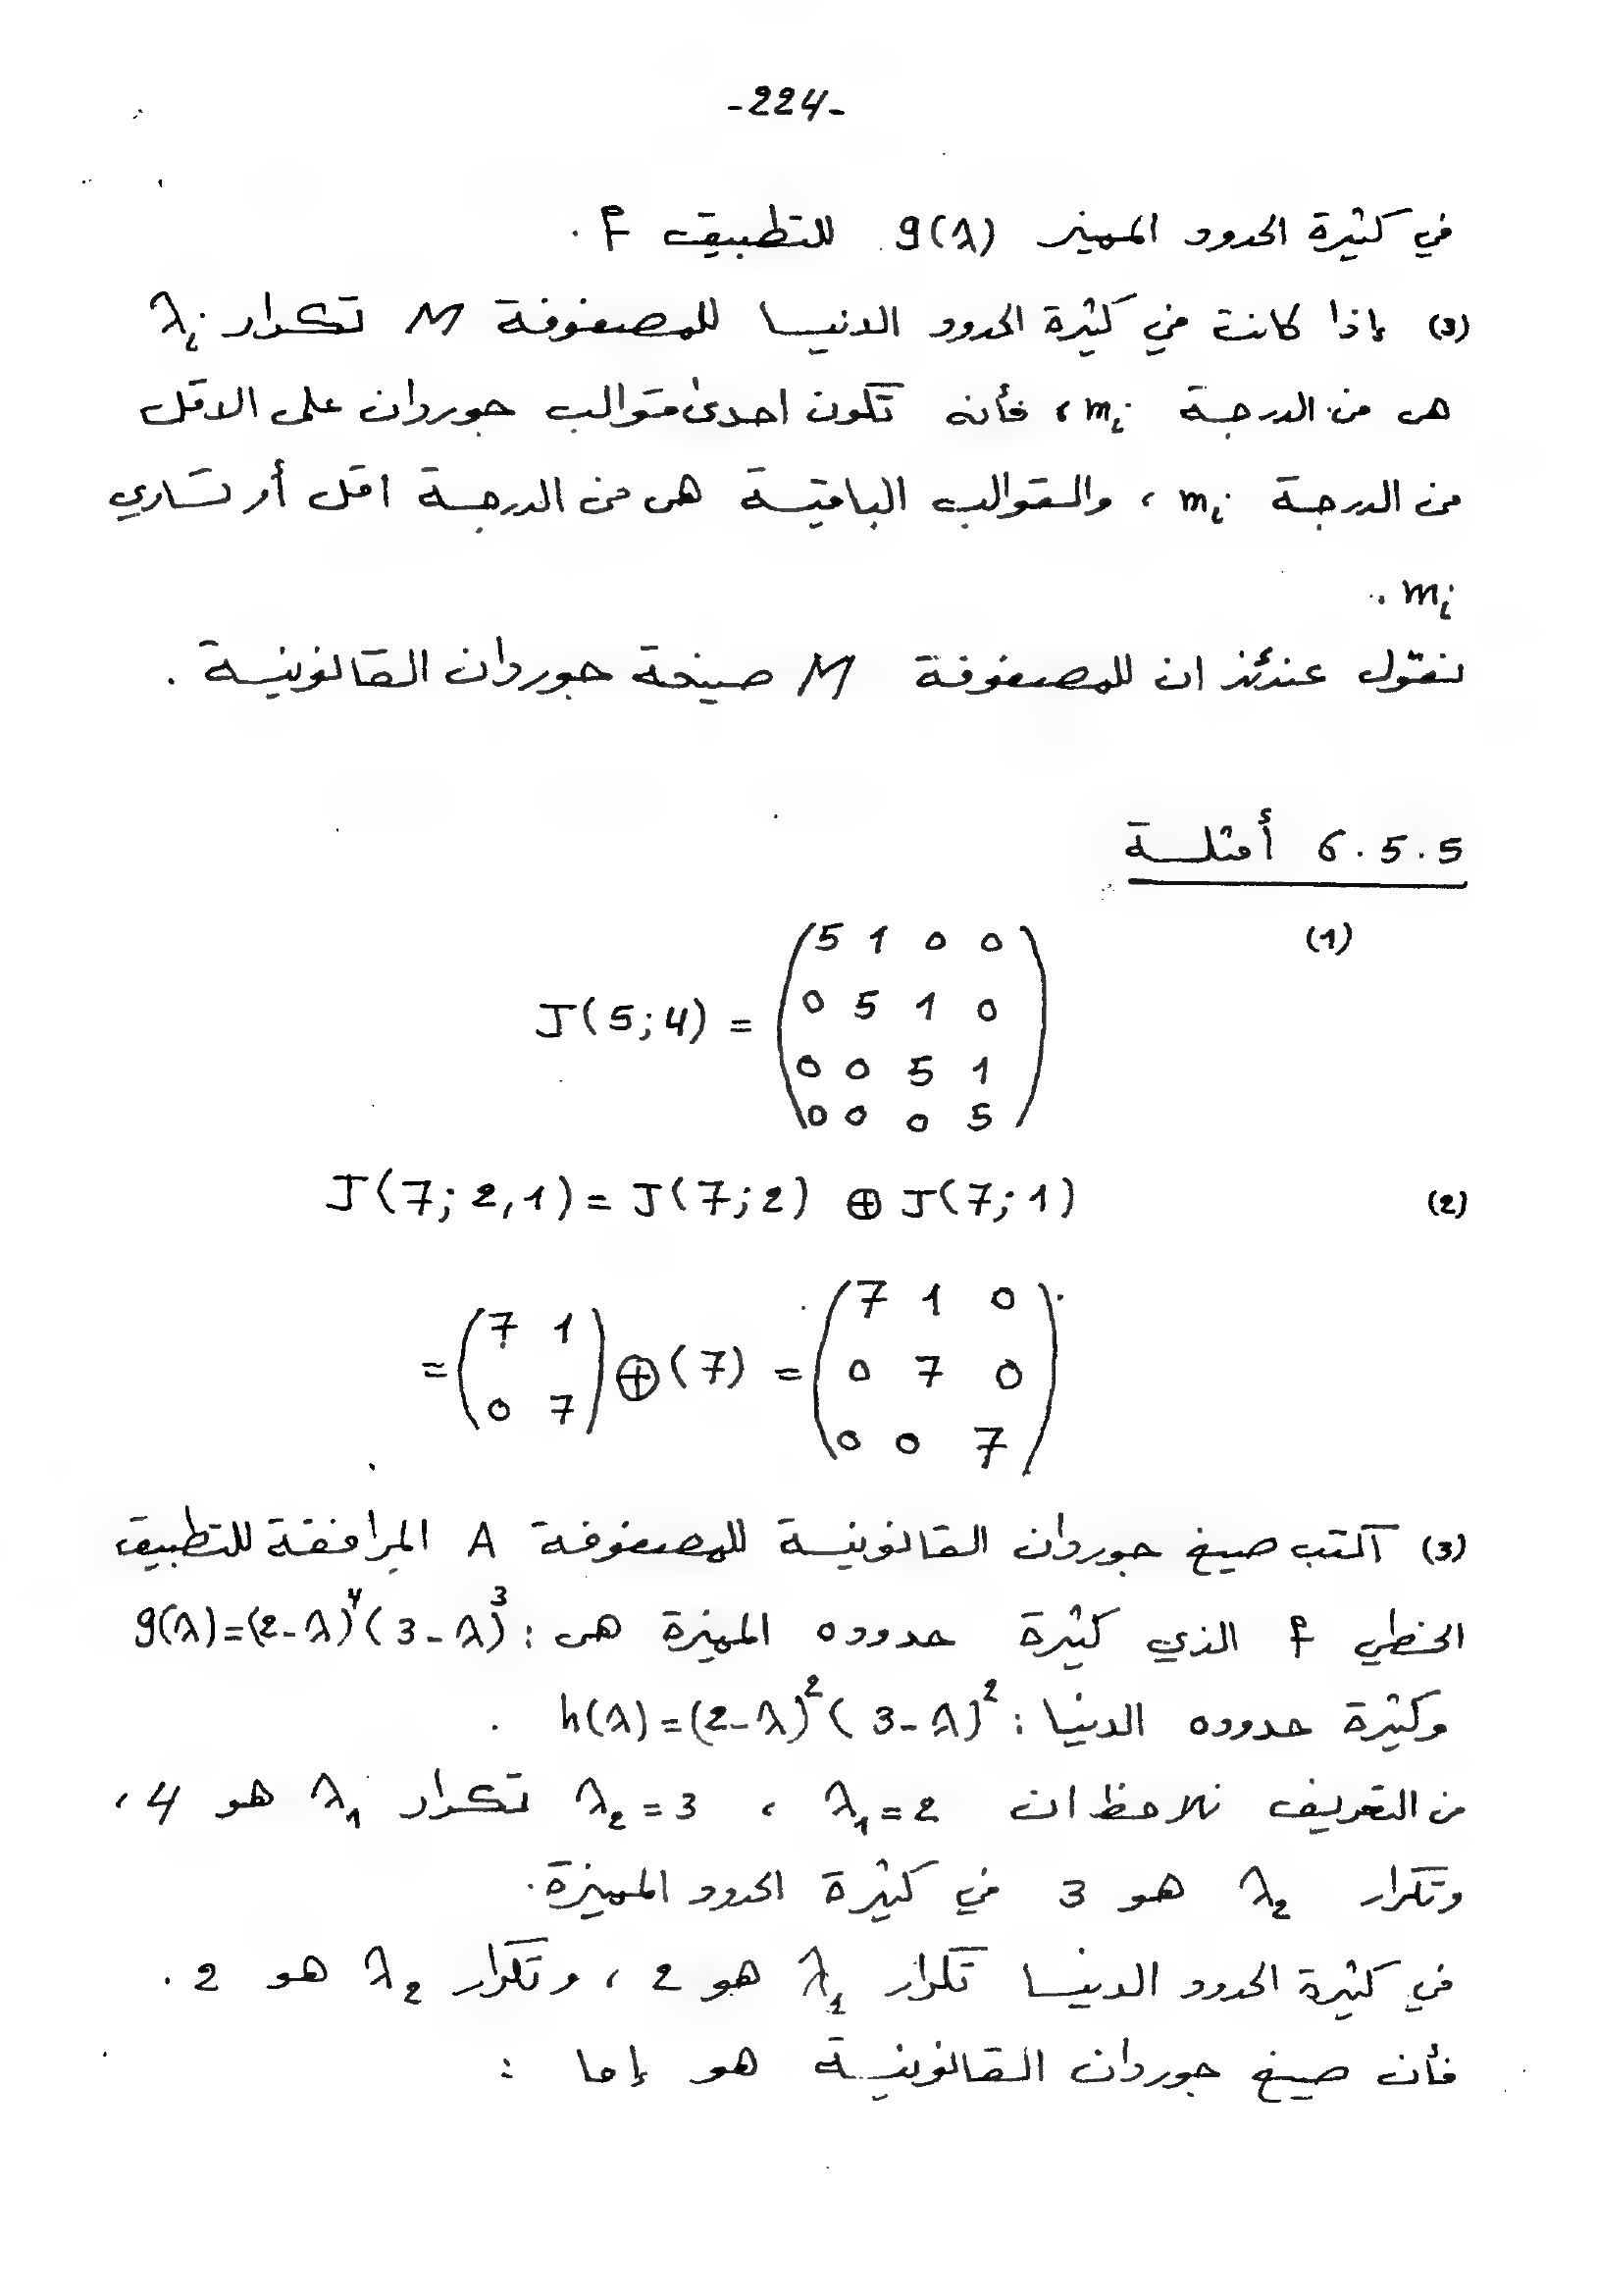 -224-
في كثيرة الحدود المميز g(λ) للتطبيق f .
(3) إذا كانت في كثيرة الحدود الدنيا للمصفوفة M تكرار λᵢ
هي من الدرجة mᵢ ، فأنه تكون احدى قوالب جوردان على الاقل
من الدرجة mᵢ ، والقوالب الباقية هي من الدرجة اقل أو تساوي
mᵢ .
نقول عندئذ ان للمصفوفة M صيغة جوردان القانونية .
6.5.5 أمثلة
(1)
J(5;4) = (5 1 0 0
0 5 1 0
0 0 5 1
0 0 0 5)
(2) J(7;2,1) = J(7;2) ⊕ J(7;1)
= (7 1
0 7) ⊕ (7) = (7 1 0
0 7 0
0 0 7)
(3) اكتب صيغ جوردان القانونية للمصفوفة A المرافقة للتطبيق
الخطي f الذي كثيرة حدوده المميزة هي : g(λ)=(2-λ)⁴(3-λ)³
وكثيرة حدوده الدنيا : h(λ)=(2-λ)²(3-λ)² .
من التعريف نلاحظ ان λ₁=2 ، λ₂=3 تكرار λ₁ هو 4 ،
وتكرار λ₂ هو 3 في كثيرة الحدود المميزة .
في كثيرة الحدود الدنيا تكرار λ₁ هو 2 ، وتكرار λ₂ هو 2 .
فأن صيغ جوردان القانونية هو إما :